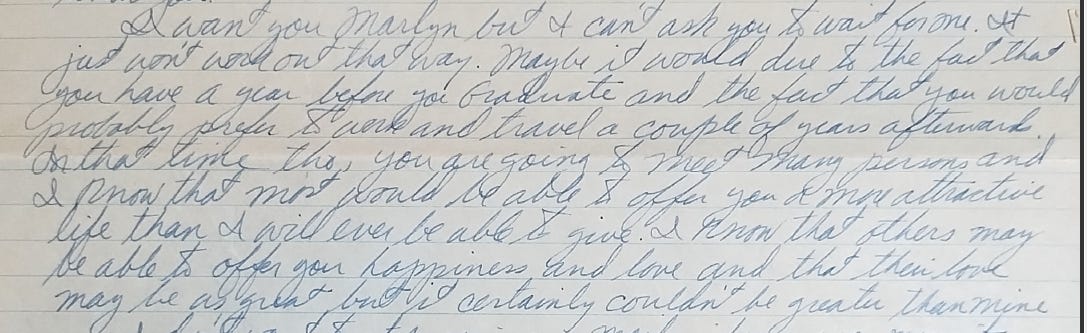 I want you Marlyn but I can't ask you to wait for me. It
just won't work out that way. Maybe it would due to the fact that
you have a year before you Graduate and the fact that you would
probably prefer to work and travel a couple of years afterward.
In that time tho, you are going to meet many persons and
I know that most would be able to offer you a more attractive
life than I will ever be able to give. I know that others may
be able to offer you happiness and love and that their love
may be as great but it certainly couldn't be greater than mine